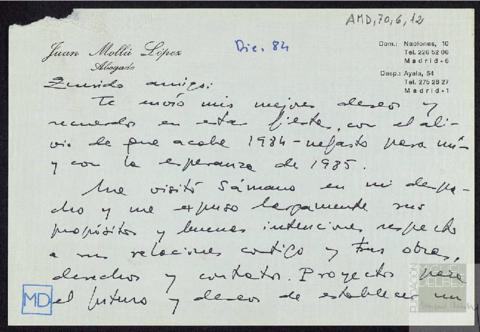 AMD,70,6,12
Dic. 84
Juan Mollá López
Abogado
Dom.: Naciones, 10
Tel. 226 52 06
Madrid-6
Desp.: Ayala, 54
Tel. 275 28 27
Madrid-1
Querido amigo:
Te envío mis mejores deseos y
recuerdo en estas fiestas, con el ali-
vio de que acabe 1984 -nefasto para mí-
y con la esperanza de 1985.
Me visitó Sámano en mi despa-
cho y me expuso largamente sus
propósitos y buenas intenciones respecto
a sus relaciones contigo y tus obras,
derechos y contratos. Proyectos para
el futuro y deseos de establecer un
MD